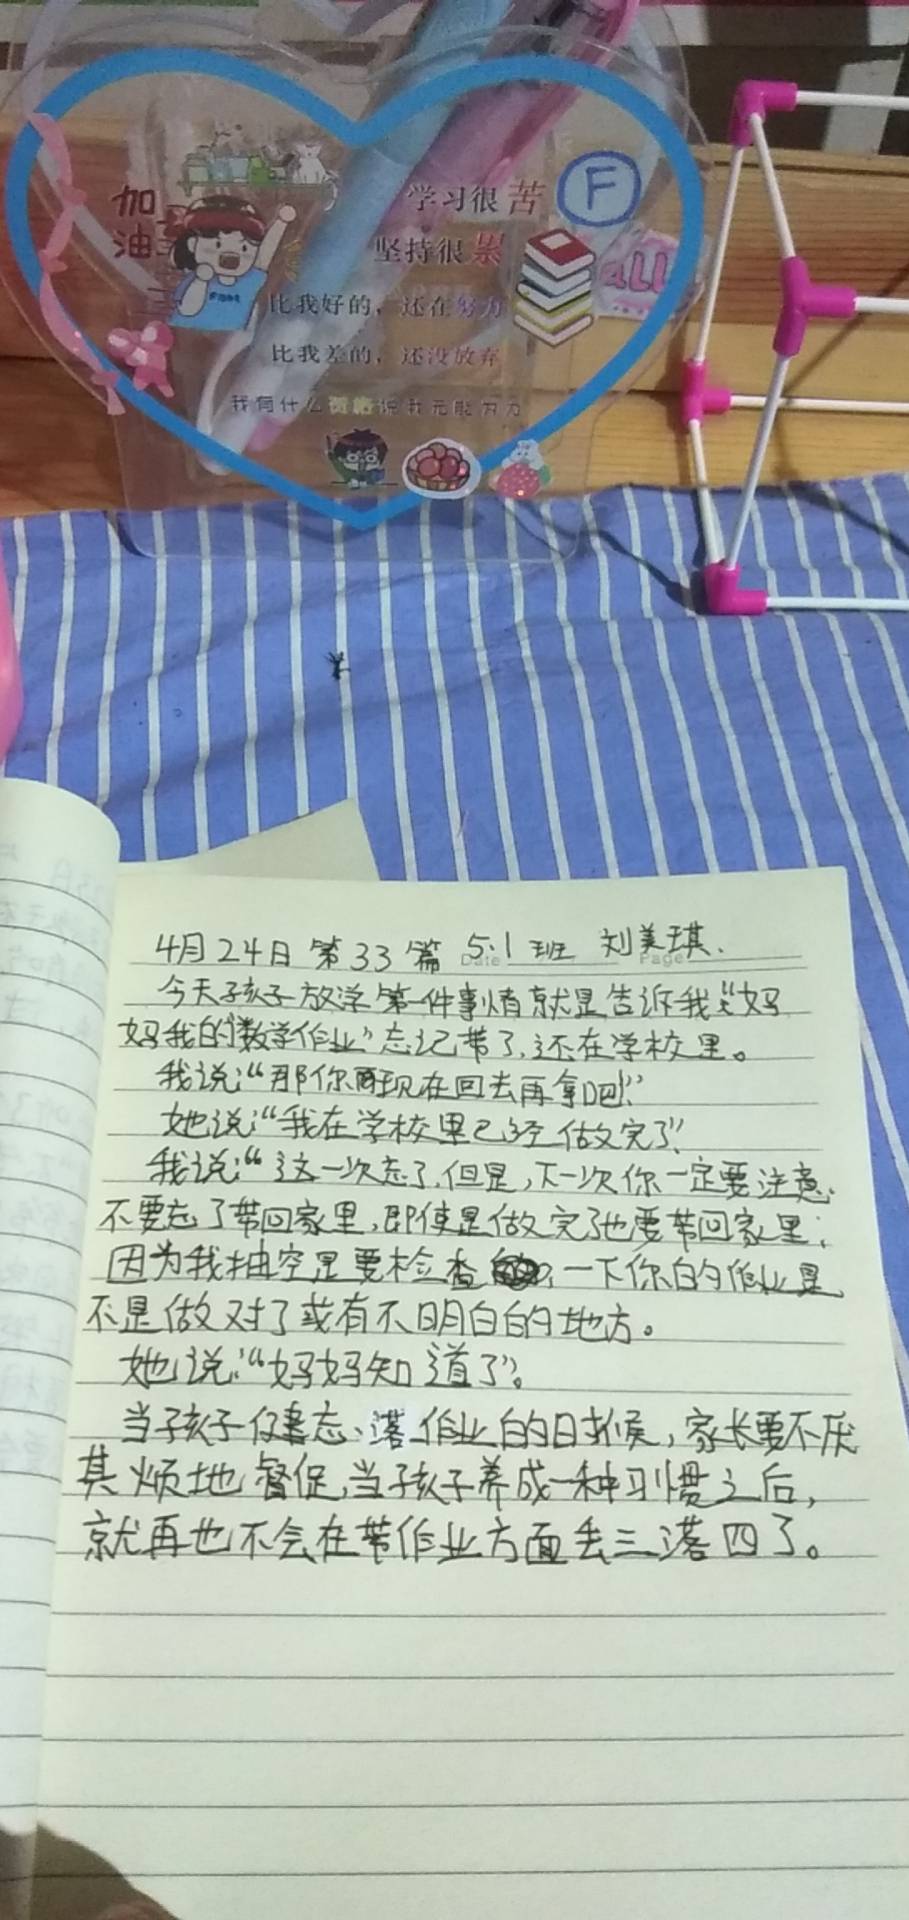 加油
学习很苦
坚持很累
比我好的，还在努力
比我差的，还没放弃
我有什么资格说我无能为力
F
ALL
4月24日 第33篇 5.1班 刘美琪.
Date Page
今天孩子放学第一件事情就是告诉我:“妈
妈我的“数学作业”忘记带了,还在学校里。
我说:“那你现在回去再拿吧”
她说:“我在学校里已经做完了”
我说:“这一次忘了.但是,下一次你一定要注意.
不要忘了带回家里,即使是做完了也要带回家里;
因为我抽空是要检查 一下你的作业是
不是做对了或有不明白的地方。
她说:“妈妈知道了”。
当孩子 忘、落作业的时候,家长要不厌
其烦地督促,当孩子养成一种习惯之后,
就再也不会在带作业方面丢三落四了。